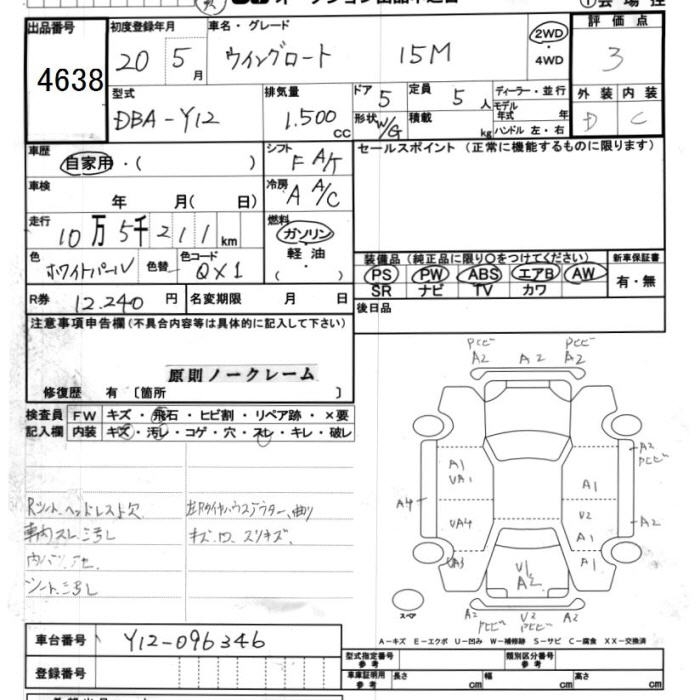 出品番号 初度登録年月 車名・グレード 評価点
4638 20 5月 ウイングロード 15M 2WD・4WD 3
型式 排気量 ドア 5 定員 5人 ディーラー・並行 外装 内装
DBA-Y12 1.500 cc 形状 W/G 積載 kg モデル年式 年 ハンドル 左・右 D C
車歴 自家用・( ) シフト F A/T セールスポイント (正常に機能するものに限ります)
車検 年 月( 日) 冷房 A A/C
走行 10万5千211km 燃料 ガソリン・軽油・( )
色 ホワイトパール 色替 色コード QX1
装備品 (純正品に限り○をつけてください) 新車保証書
PS PW ABS エアB AW 有・無
SR ナビ TV カワ
R券 12.240円 名変期限 月 日 後日品
注意事項申告欄(不具合内容等は具体的に記入して下さい)
原則ノークレーム
修復歴 有 〔箇所 〕
検査員 FW キズ・飛石・ヒビ割・リペア跡・×要
記入欄 内装 キズ・汚レ・コゲ・穴・スレ・キレ・破レ
Rシート、ヘッドレスト欠
車内スレ、ヨゴレ
シート、ヨゴレ
キズ、凹、スリキズ、
PCビ PCビ
A2 A2 A2
A1 A2
UA1 PCビ
A1
A4 UA4 U2 A2
A1
UA3 A1
U1
A2
スペア A2 U2 A2
PCビ PCビ
A-キズ E-エクボ U-凹み W-補修跡 S-サビ C-腐食 XX-交換済
車台番号 Y12-096346
登録番号
型式指定番号 参考 類別区分番号 参考
車庫証明用 参考 長さ cm 幅 cm 高さ cm